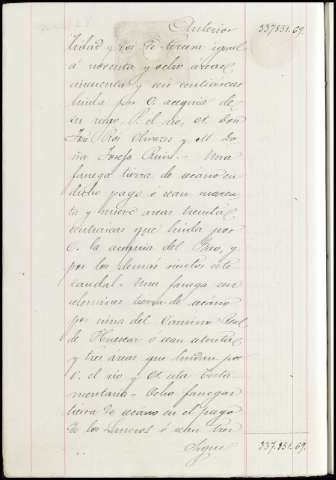 Anterior 337.851.69.
igual
á noventa y ocho areas
cincuenta y seis centiareas
linda por O. acequia de
su riego N. el rio, M. Don
José Ros Alvarez y M. Do-
ña Josefa Ruiz.- Una
fanega tierra de secano en
dicho pago ó sean cuaren-
ta y nueve areas treinta
centiareas que linda por
O. la acequia del Pino, y
por los demás vientos este
caudal.- Una fanega un
celemin tierra de secano
por cima del Camino Real
de Huescar ó sean
y tres areas que lindan por
O. el rio y esta testa-
mentaria.- Ocho fanegas
tierra de secano en el pago
de los ó sean tres
Sigue 337.851.69.